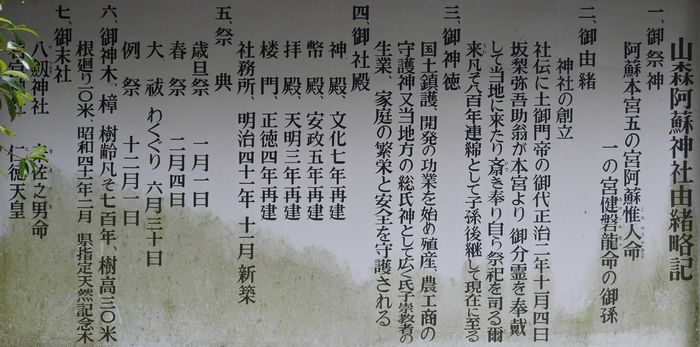 山森阿蘇神社由緒略記
一、御祭神
阿蘇本宮五の宮阿蘇惟人命
一の宮健磐龍命の御孫
二、御由緒
神社の創立
社伝に土御門帝の御代正治二年十月四日
坂梨弥吾助翁が本宮より 御分霊を奉戴
して当地に来たり斎き奉り自ら祭祀を司る爾
来凡そ八百年連綿として子孫後継して現在に至る
三、御神徳
国土鎮護、開発の功業を始め殖産、農工商の
守護神又当地方の総氏神として広く氏子崇教者の
生業、家庭の繁栄と安全を守護される
四、御社殿
神殿、文化七年再建
幣殿、安政五年再建
拝殿、天明三年再建
楼門、正徳四年再建
社務所、明治四十一年、十一月新築
五、祭典
歳旦祭 一月一日
春祭 二月四日
大祓 わくぐり 六月三十日
例祭 十二月一日
六、御神木、樟 樹齢凡そ七百年、樹高三〇米
根廻り一〇米、昭和四十一年二月 県指定天然記念木
七、御末社
八剱神社 佐之男命
仁徳天皇